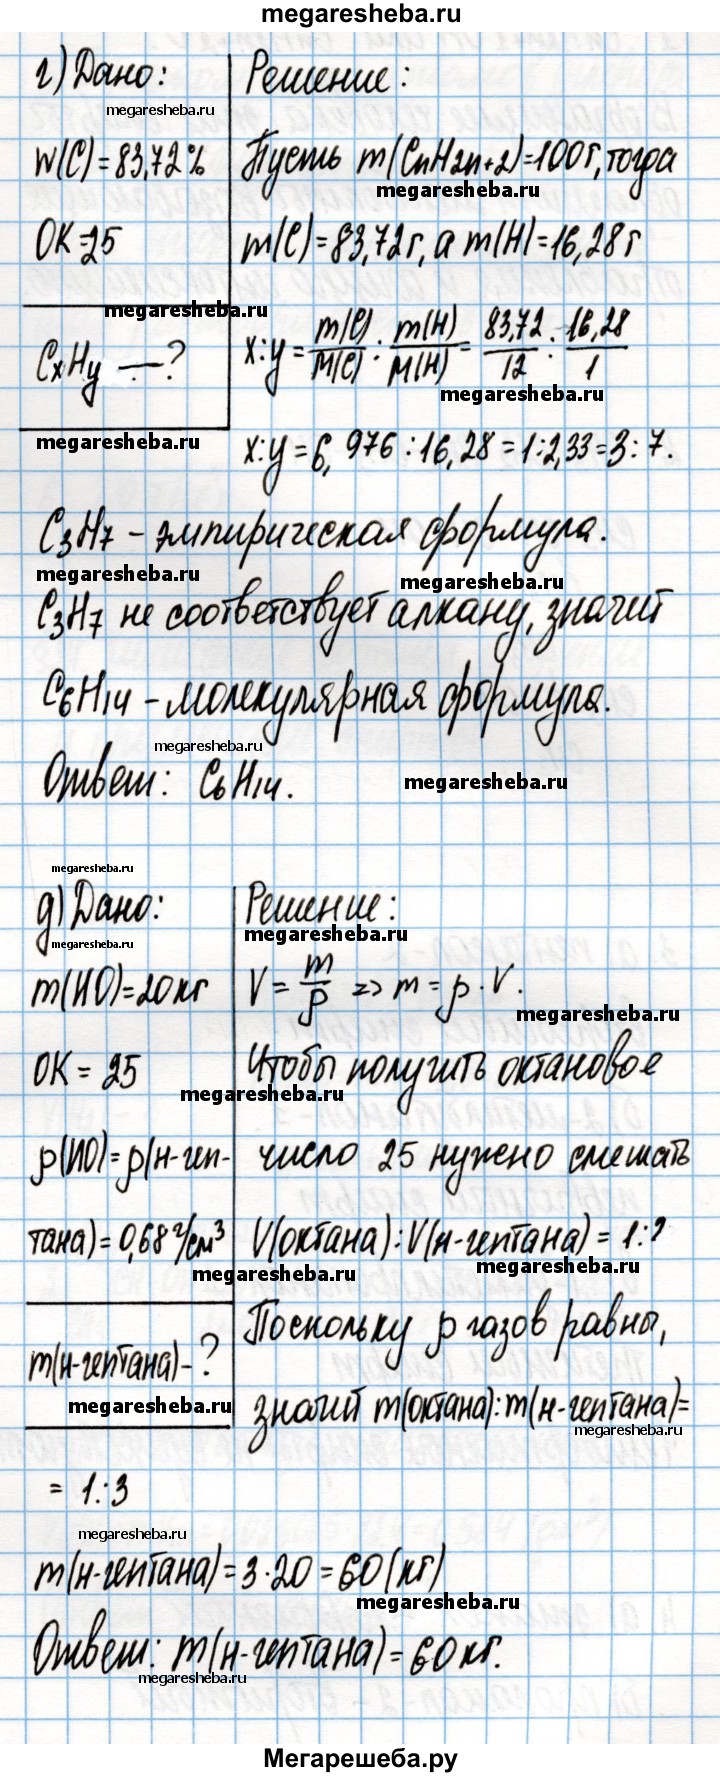 megaresheba.ru
г) Дано:
Решение:
megaresheba.ru
W(C)=83,72%
Пусть m(CnH2n+2)=100г, тогда
megaresheba.ru
OK=25
m(C)=83,72г, а m(H)=16,28г
megaresheba.ru
CxHy —?
x:y = m(C)/M(C) : m(H)/M(H) = 83,72/12 : 16,28/1
megaresheba.ru
megaresheba.ru
x:y=6,976:16,28=1:2,33=3:7.
C3H7 – эмпирическая формула.
megaresheba.ru
megaresheba.ru
C3H7 не соответствует алкану, значит
C6H14 – молекулярная формула.
megaresheba.ru
Ответ: C6H14.
megaresheba.ru
megaresheba.ru
д) Дано:
Решение:
megaresheba.ru
megaresheba.ru
m(ИО)=20кг
V = m/ρ => m = ρ · V.
megaresheba.ru
OK = 25
Чтобы получить октановое
megaresheba.ru
ρ(ИО)=ρ(н-геп-
число 25 нужно смешать
тана)=0,68 г/см³
V(октана):V(н-гептана)=1:?
megaresheba.ru
megaresheba.ru
m(н-гептана)-?
Поскольку ρ газов равны,
megaresheba.ru
значит m(октана):m(н-гептана)=
megaresheba.ru
= 1:3
megaresheba.ru
m(н-гептана)=3·20=60(кг)
megaresheba.ru
Ответ: m(н-гептана)=60кг.
megaresheba.ru
Мегарешеба.ру